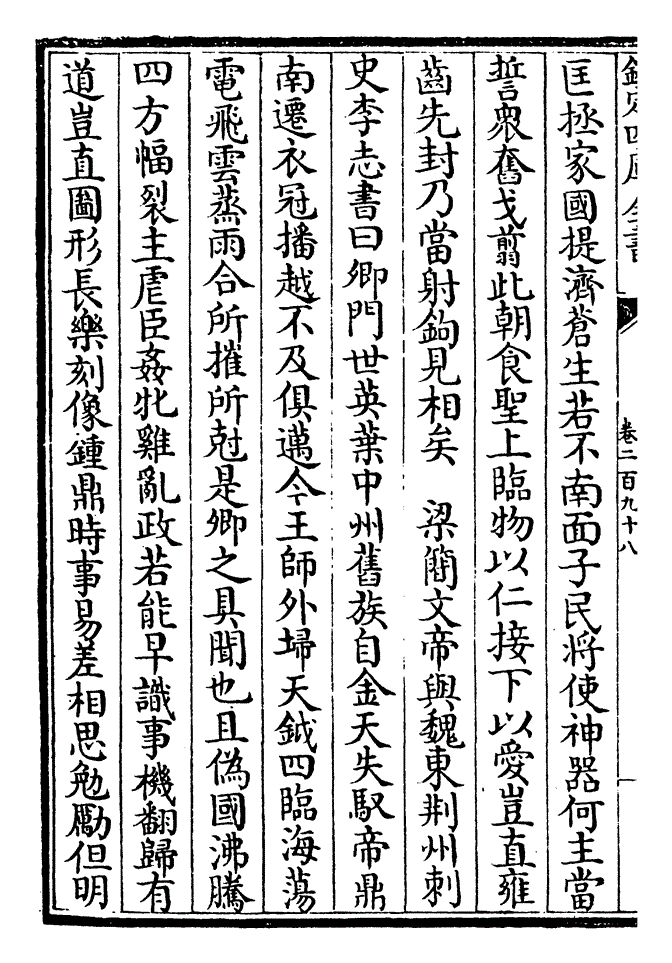 欽定四庫全書
卷二百九十八
匡拯家國提濟蒼生若不南面子民將使神器何主當
誓衆奮戈翦此朝食聖上臨物以仁接下以愛豈直雍
齒先封乃當射鉤見相矣　梁簡文帝與魏東荆州刺
史李志書曰卿門世英葉中州舊族自金天失馭帝鼎
南遷衣冠播越不及俱邁今王師外埽天鉞四臨海蕩
電飛雲蒸雨合所摧所尅是卿之具聞也且偽國沸騰
四方幅裂主虐臣姦牝雞亂政若能早識事機翻歸有
道豈直圖形長樂刻像鍾鼎時事易差相思勉勵但明